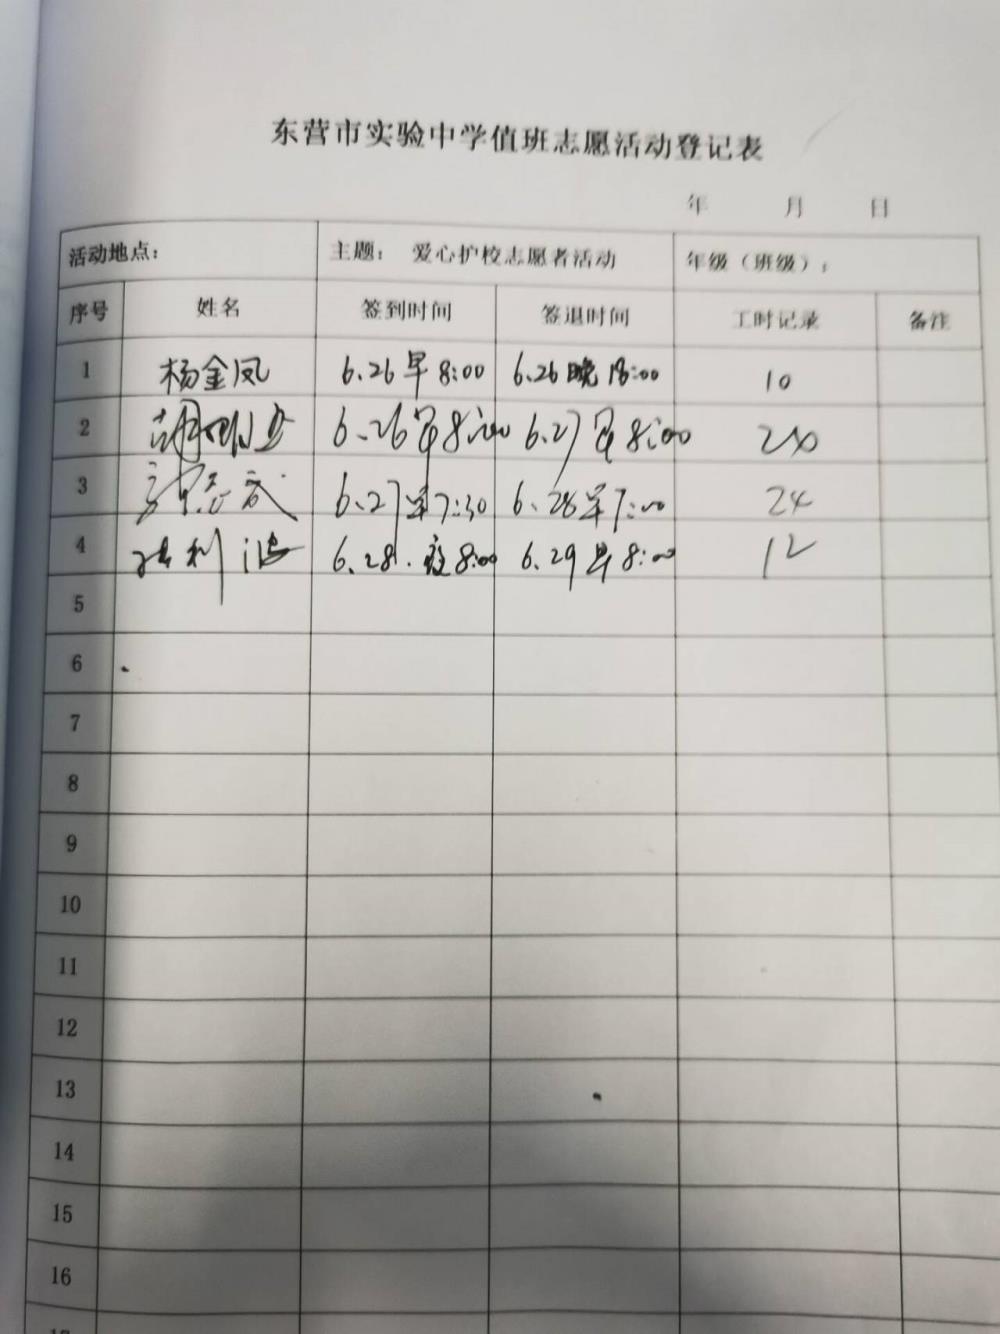 东营市实验中学值班志愿活动登记表
年 月 日
活动地点： 主题： 爱心护校志愿者活动 年级（班级）：
序号 姓名 签到时间 签退时间 工时记录 备注
1 杨金凤 6.26早8:00 6.26晚18:00 10
2 6.26早8:00 6.27早8:00
3 6.27早7:30 6.28早7:00 24
4 6.28.夜8:00 6.29早8:00 12
5
6
7
8
9
10
11
12
13
14
15
16